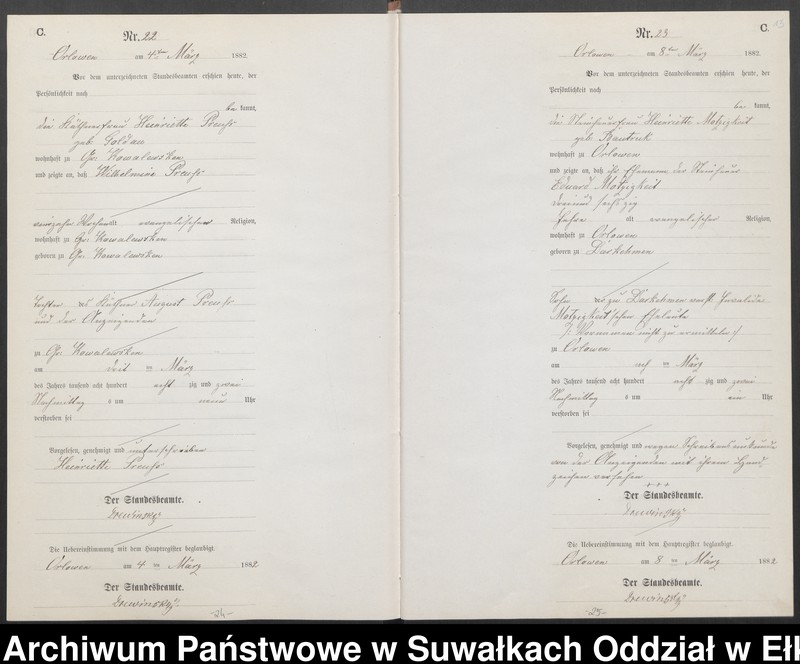 C.
Nr. 22
Orlowen am 4ten März 1882.
Vor dem unterzeichneten Standesbeamten erschien heute, der
Persönlichkeit nach
be kannt,
die Käthnerfrau Heinriette Preuß
geb. Goldau
wohnhaft zu Gr. Kowalewsken
und zeigte an, daß Wilhelmine Preuß
Wochen alt evangelischer Religion,
wohnhaft zu Gr. Kowalewsken
geboren zu Gr. Kowalewsken
Tochter des Käthner August Preuß
und der Anzeigenden
zu Gr. Kowalewsken
am drit ten März
des Jahres tausend acht hundert acht zig und zwei
Nachmittag s um neun Uhr
verstorben sei
Vorgelesen, genehmigt und unterschrieben
Heinriette Preuß
Der Standesbeamte.
Die Uebereinstimmung mit dem Hauptregister beglaubigt.
Orlowen am 4 ten März 1882
Der Standesbeamte.
-24-
C.
Nr. 23
Orlowen am 8ten März 1882.
Vor dem unterzeichneten Standesbeamten erschien heute, der
Persönlichkeit nach
be kannt,
die Heinriette Motzigkeit
geb.
wohnhaft zu Orlowen
und zeigte an, daß ihr Ehemann der
Eduard Motzigkeit
dreiund sechszig
Jahre alt evangelischer Religion,
wohnhaft zu Orlowen
geboren zu Darkehmen
Sohn der zu Darkehmen verst.
Motzigkeit'schen Eheleute
/: Vornamen nicht zu ermitteln :/
zu Orlowen
am ten März
des Jahres tausend acht hundert acht zig und zwei
Nachmittag s um ein Uhr
verstorben sei
Vorgelesen, genehmigt und wegen Schreibensunkunde
von der Anzeigenden mit ihrem Hand
zeichen versehen
+++
Der Standesbeamte.
Die Uebereinstimmung mit dem Hauptregister beglaubigt.
Orlowen am 8 ten März 1882
Der Standesbeamte.
-25-
Archiwum Państwowe w Suwałkach Oddział w Ełk